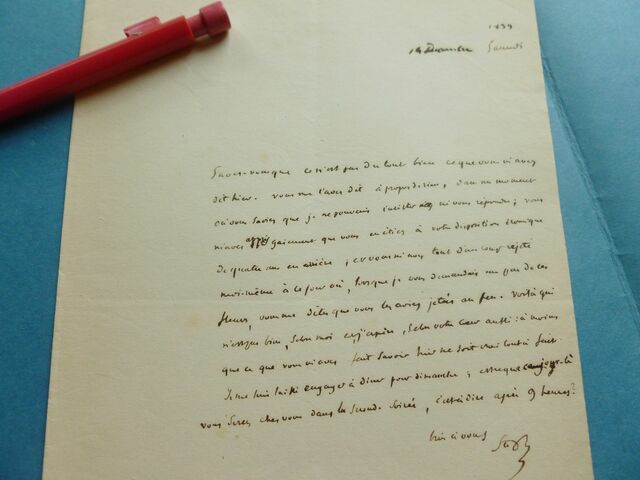 1839
14 Décembre Samedi
Savez-vous que ce n'est pas du tout bien ce que vous m'avez
dit hier. vous me l'avez dit à propos de rien, dans un moment
où vous saviez que je ne pouvais insister ni vous répondre ; vous
m'avez gaiement que vous en étiez à votre disposition ironique
de quatre ans en arrière ; et vous m'avez tout d'un coup rejeté
moi-même à ce jour où, lorsque je vous demandais un peu de ces
fleurs, vous me dites que vous les aviez jetées au feu. Voilà qui
n'est pas bien, selon moi et j'espère, selon votre cœur aussi : à moins
que ce que vous m'avez fait savoir hier ne soit vrai tout à fait.
Je me suis laissé engager à dîner pour dimanche ; est-ce que ce jour-là
vous serez chez vous dans la seconde soirée, c'est-à-dire après 9 heures?